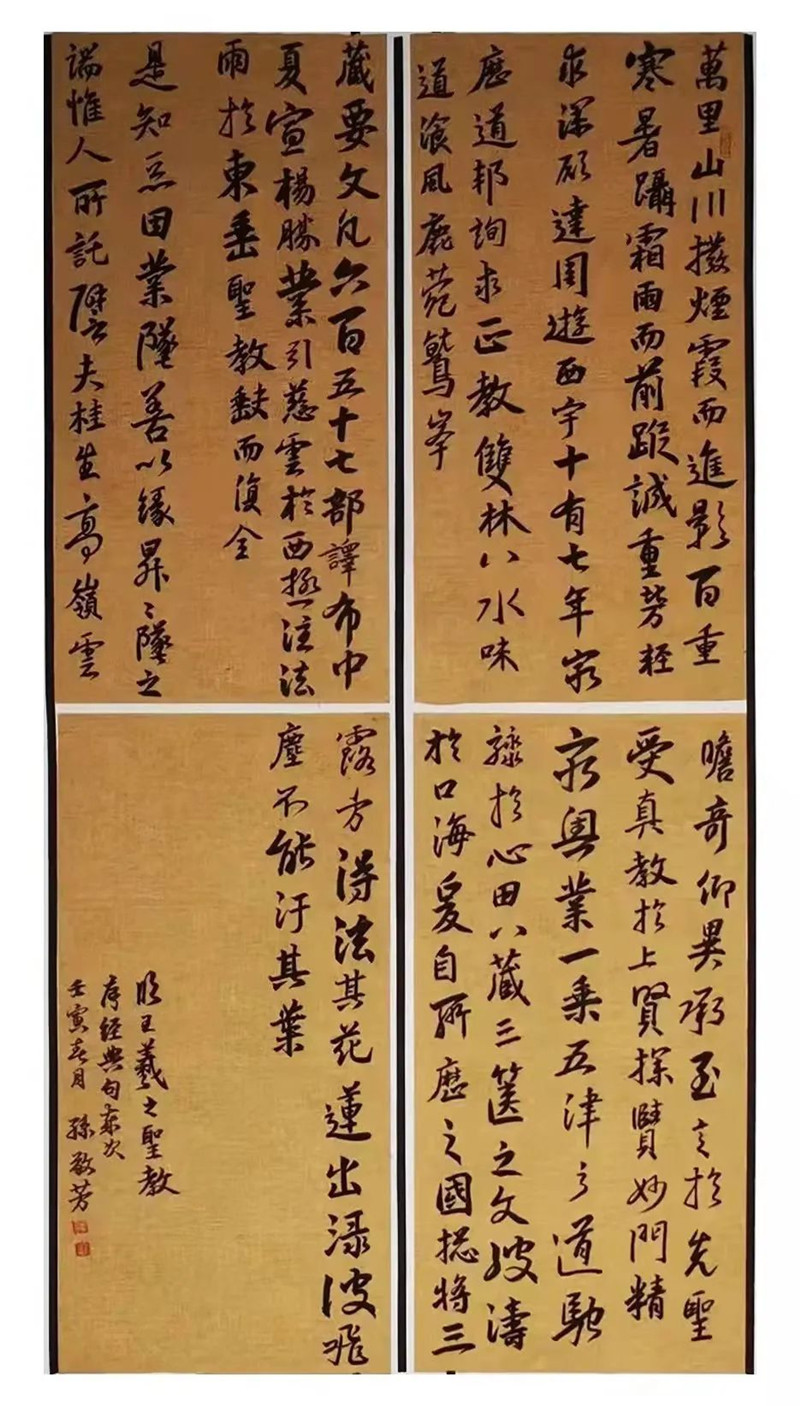 萬里山川撥煙霞而進影百重
寒暑躡霜雨而前蹤誠重勞輕
求深願達周遊西宇十有七年窮
歷道邦詢求正教雙林八水味
道湌風鹿菀鷲峯
瞻奇仰異承至言於先聖
受真教於上賢探賾妙門精
窮奧業一乘五律之道馳
驟於心田八藏三篋之文波濤
於口海爰自所歷之國總將三
藏要文凡六百五十七部譯布中
夏宣楊勝業引慈雲於西極注法
雨於東垂聖教缺而復全
是知惡因業墜善以緣昇〻墜之
端惟人所託譬夫桂生高嶺雲
露方得法其花蓮出渌波飛
塵不能汙其葉
臨王羲之聖教
序經典句
壬寅春月 孫敬芳